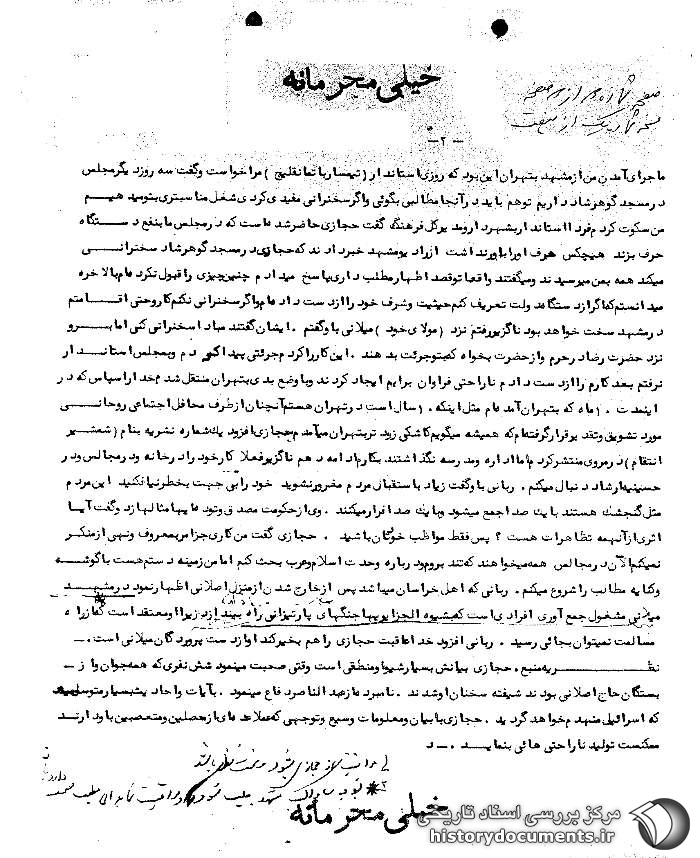 خیلی محرمانه
صفحه شماره ۲ از ۲ صفحه
نسخه شماره یک از هفت
- ۲ -
ماجرای آمدن من از مشهد بتهران این بود که روزی استاندار (تیمسار باتمانقلیج) مرا خواست وگفت سه روز دیگر مجلس
در مسجد گوهرشاد داریم توهم باید در آنجا مطالبی بگوئی واگر سخنرانی مفیدی کردی شغل مناسبتری بتو میدهیم
من سکوت کردم فردا استاندار بشهردار و مدیرکل فرهنگ گفت حجازی حاضر شده است که در مجلس ما بنفع دستگاه
حرف بزند هیچکس حرف اورا باور نداشت از رادیو مشهد خبر دادند که حجازی در مسجد گوهرشاد سخنرانی
میکند همه بمن میرسیدند و میگفتند واقعا توقصد اظهار مطلب داری پاسخ میدادم چنین چیزی را قبول نکرده ام بالاخره
میدانستم که اگر از دستگاه دولت تعریف کنم حیثیت وشرف خود را از دست داده ام واگر سخنرانی نکنم کار وحتی اقامتم
در مشهد سخت خواهد بود ناگزیر رفتم نزد (مولای خود) میلانی باو گفتم . ایشان گفتند مبادا سخنرانی کنی اما برو
نزد حضرت رضا در حرم واز حضرت بخواه که بتو جرئت بدهند . این کار را کردم جرئتی پیدا کردم و بمجلس استاندار
نرفتم بعد کارم را از دست دادم ناراحتی فراوان برایم ایجاد کردند وبا وضع بدی بتهران منتقل شدم خدا را سپاس که در
اینمدت ۱۰ ماه که بتهران آمده ام مثل اینکه ۱۰ سال است در تهران هستم آنچنان از طرف محافل اجتماعی روحانی
مورد تشویق وتقدیر قرار گرفته ام که همیشه میگویم کاشکی زودتر بتهران میآمدم حجازی افزود یک شماره نشریه بنام (شمشیر
انتقام) در مروی منتشر کردم اما اداره ومدرسه نگذاشتند بکارم ادامه دهم ناگزیر فعلا کار خود را در خانه ودر مجالس ودر
حسینیه ارشاد دنبال میکنم . ربانی باو گفت زیاد با ستقبال مردم مغرور نشوید خود را بی جهت بخطر نیافکنید این مردم
مثل گنجشک هستند با یک صدا جمع میشود وبا یک صدا فرار میکنند . وی از حکومت مصدق وتوده ایها مثالها زد وگفت آیا
اثری از آنهمه تظاهرات هست ؟ پس فقط مواظب خودتان باشید . حجازی گفت من کاری جز امر بمعروف ونهی از منکر
نمیکنم الآن در مجالس همه میخواهند که تند بروم ودرباره وحدت اسلام وعرب بحث کنم اما من زمینه دستم هست با گوشه
وکنایه مطالب را شروع میکنم . ربانی که اهل خراسان میباشد پس از خارج شدن از منزل اصلانی اظهار نمود در مشهد
میلانی مشغول جمع آوری افرادی است که بشیوه الجزایریها جنگهای پارتیزانی راه بیندازد زیرا او معتقد است که از راه
مسالمت نمیتوان بجائی رسید . ربانی افزود خدا عاقبت حجازی را هم بخیر کند او از دست پروردگان میلانی است .
نظریه منبع . حجازی بیانش بسیار شیوا ومنطقی است وقتی صحبت مینمود شش نفری که همه جوان واز
بستگان حاج اصلانی بودند شیفته سخنان او شدند . نامبرده از عبدالناصر دفاع مینمود . بآیات واحادیث بسیار متوسل میشد
که اسرائیل منهدم خواهد گردید . حجازی با بیان ومعلومات وسیع وتوجهی که عده ای از محصلین ومتعصبین باو دارند
ممکنست تولید ناراحتی هائی بنماید . - د
خیلی محرمانه
مرکز بررسی اسناد تاریخی
historydocuments.ir